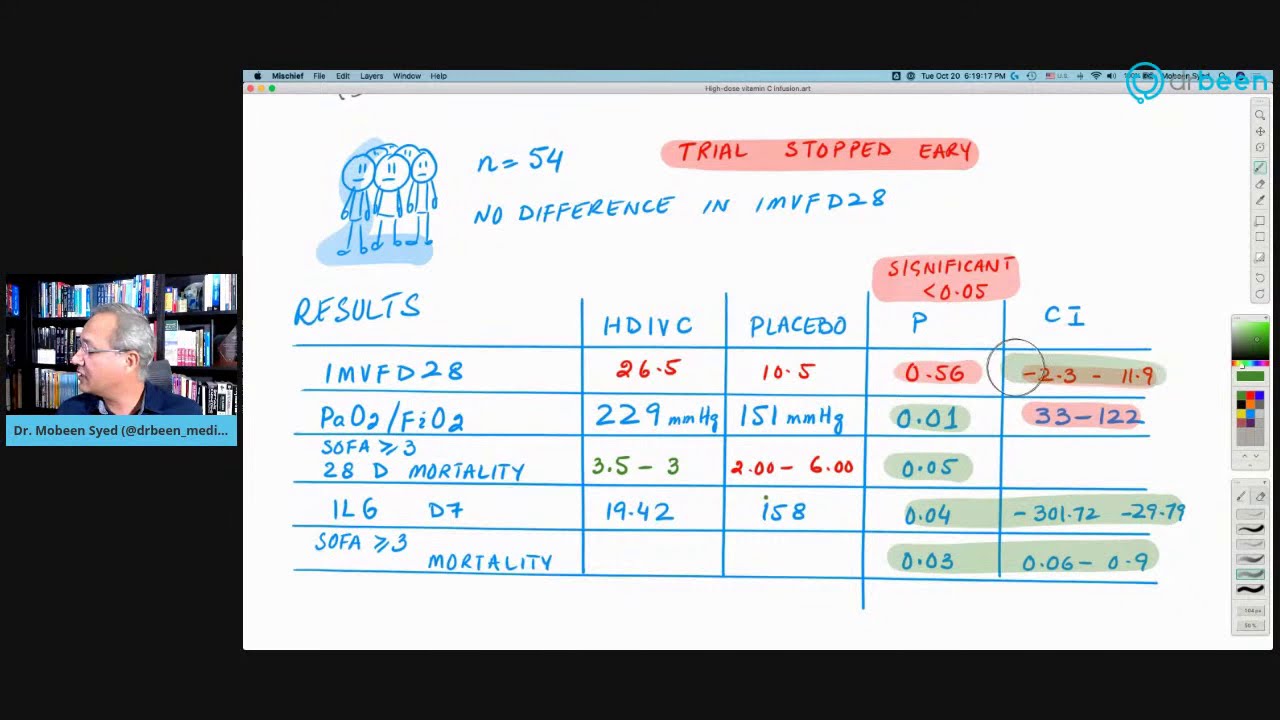 Mischief File Edit Layers Window Help
Tue Oct 20 6:19:17 PM
Mobeen Syed
drbeen
High-dose vitamin C infusion.art
n = 54
TRIAL STOPPED EARY
NO DIFFERENCE IN IMVFD28
SIGNIFICANT
<0.05
RESULTS HDIVC PLACEBO P CI
IMVFD28 26.5 10.5 0.56 -2.3 - 11.9
PaO2/FiO2 229 mmHg 151 mmHg 0.01 33-122
SOFA ⩾3
28 D MORTALITY 3.5 - 3 2.00 - 6.00 0.05
IL6 D7 19.42 158 0.04 -301.72 -29.79
SOFA ⩾3
MORTALITY 0.03 0.06 - 0.9
Dr. Mobeen Syed (@drbeen_medi...